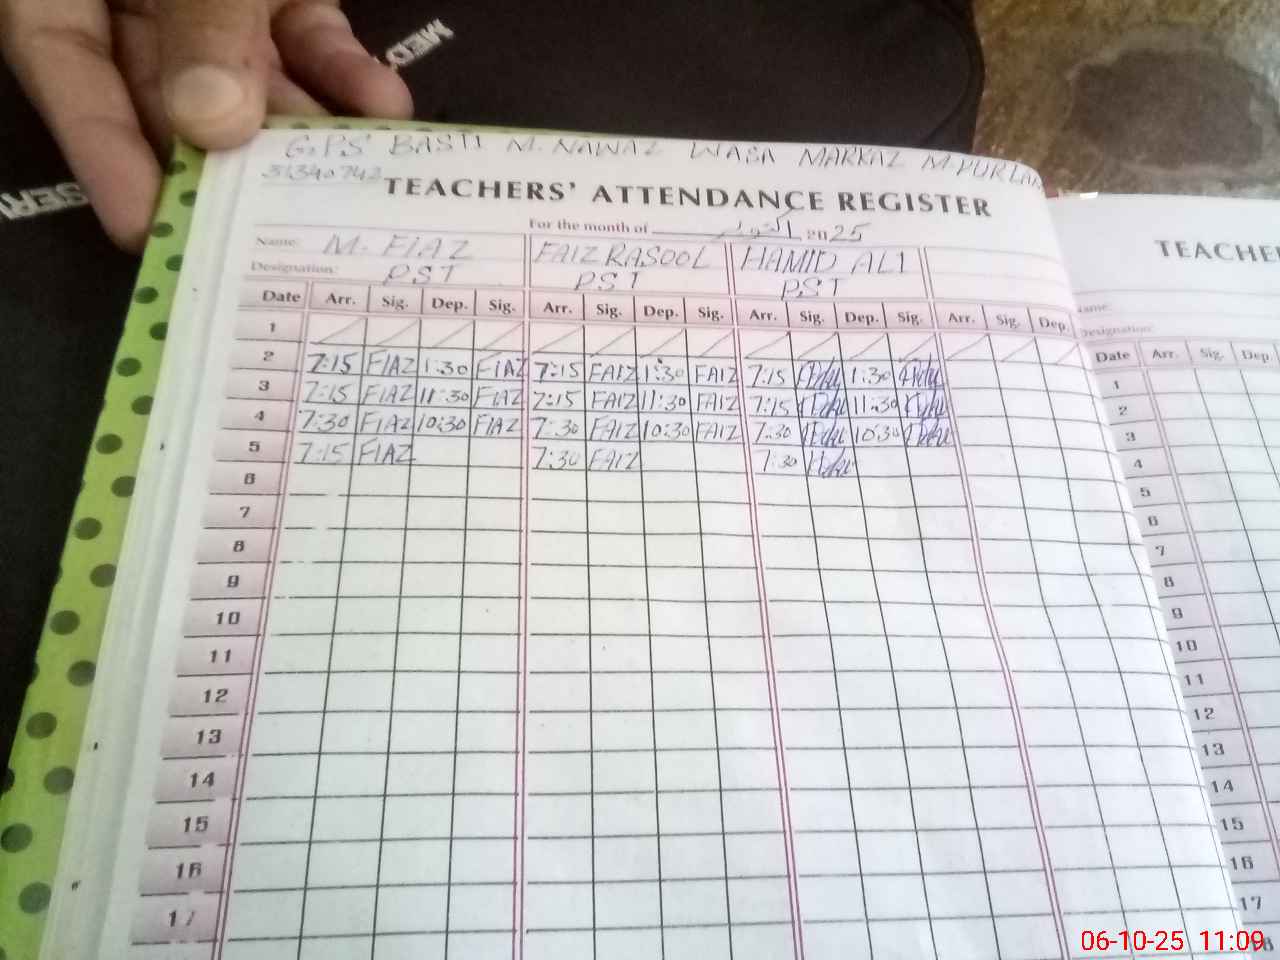 G.P.S BASTI M. NAWAZ WASA MARKAZ M.PUR LAM
31340742
TEACHERS' ATTENDANCE REGISTER
For the month of اکتوبر 2025
Name: M. FIAZ FAIZ RASOOL HAMID ALI
Designation: PST PST PST
Date Arr. Sig. Dep. Sig. Arr. Sig. Dep. Sig. Arr. Sig. Dep. Sig. Arr. Sig. Dep.
1
2 7:15 FIAZ 1:30 FIAZ 7:15 FAIZ 1:30 FAIZ 7:15 1:30
3 7:15 FIAZ 11:30 FIAZ 7:15 FAIZ 11:30 FAIZ 7:15 11:30
4 7:30 FIAZ 10:30 FIAZ 7:30 FAIZ 10:30 FAIZ 7:30 10:30
5 7:15 FIAZ 7:30 FAIZ 7:30
6
7
8
9
10
11
12
13
14
15
16
17
TEACHE
ame:
Designation:
Date Arr. Sig. Dep.
1
2
3
4
5
6
7
8
9
10
11
12
13
14
15
16
17
18
MED
SER
06-10-25 11:09